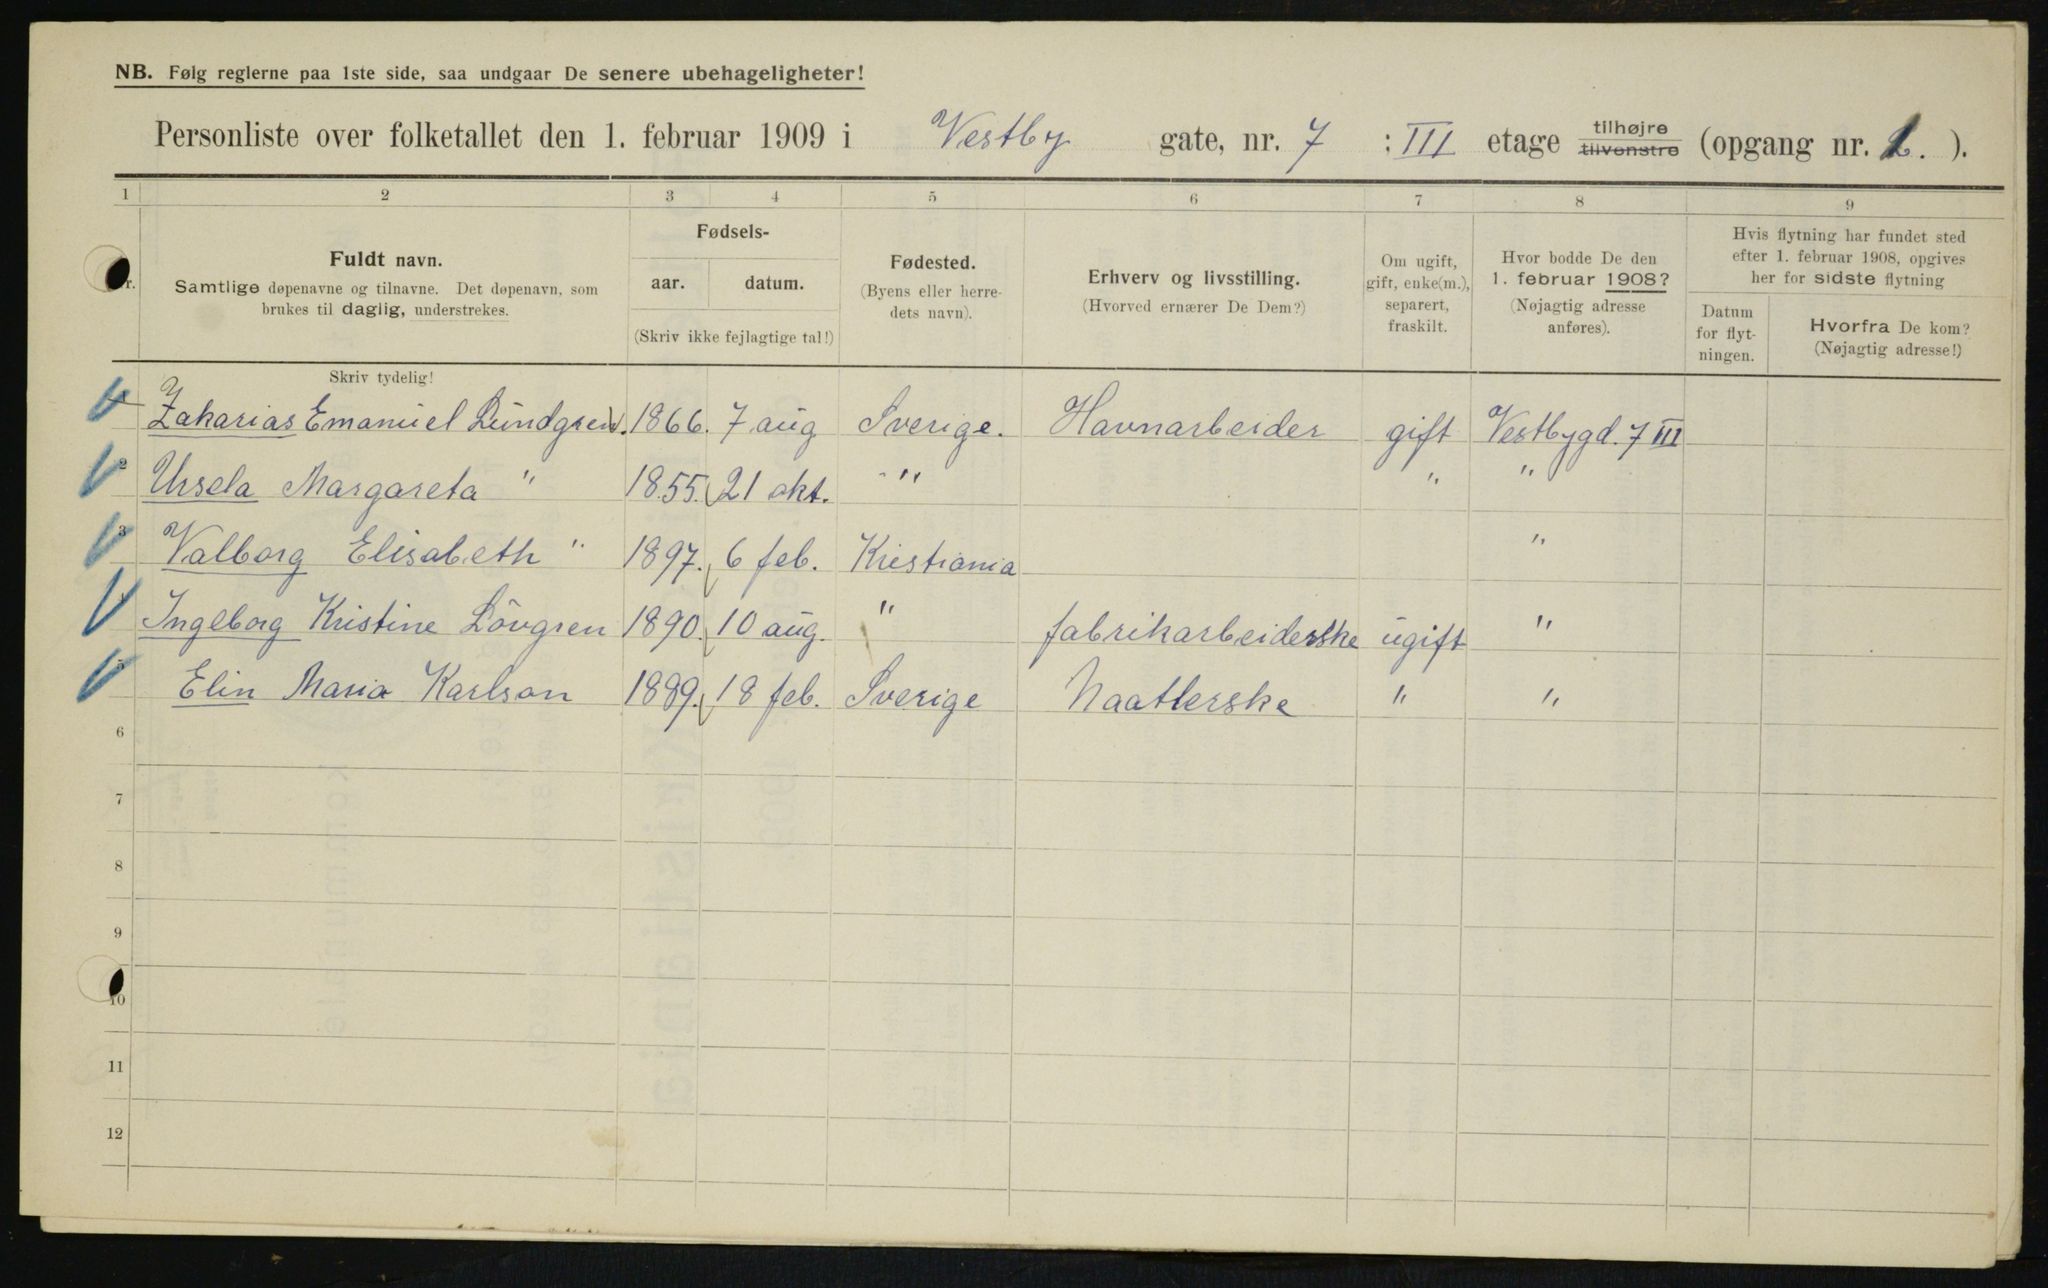 NB. Følg reglerne paa 1ste side, saa undgaar De senere ubehageligheter!
Personliste over folketallet den 1. februar 1909 i Vestby gate, nr. 7 : III etage tilhøjre tilvenstre (opgang nr. 2. ).
1 2 3 4 5 6 7 8 9
Fuldt navn.
Samtlige døpenavne og tilnavne. Det døpenavn, som
brukes til daglig, understrekes.
Fødsels-
aar. datum.
(Skriv ikke fejlagtige tal!)
Fødested.
(Byens eller herre-
dets navn).
Erhverv og livsstilling.
(Hvorved ernærer De Dem?)
Om ugift,
gift, enke(m.),
separert,
fraskilt.
Hvor bodde De den
1. februar 1908?
(Nøjagtig adresse
anføres).
Hvis flytning har fundet sted
efter 1. februar 1908, opgives
her for sidste flytning
Datum
for flyt-
ningen.
Hvorfra De kom?
(Nøjagtig adresse!)
Skriv tydelig!
Zakarias Emanuel Lundgren. 1866. 7 aug Sverige. Havnarbeider gift Vestbygd. 7 III
2 Ursela Margareta " 1855. 21 okt. " " "
3 Valborg Elisabeth " 1897. 6 feb. Kristiania "
Ingeborg Kristine Lövgren 1890. 10 aug. " fabrikarbeiderske ugift "
5 Elin Maria Karlson 1889. 18 feb. Sverige Naatlerske " "
6
7
8
9
10
11
12